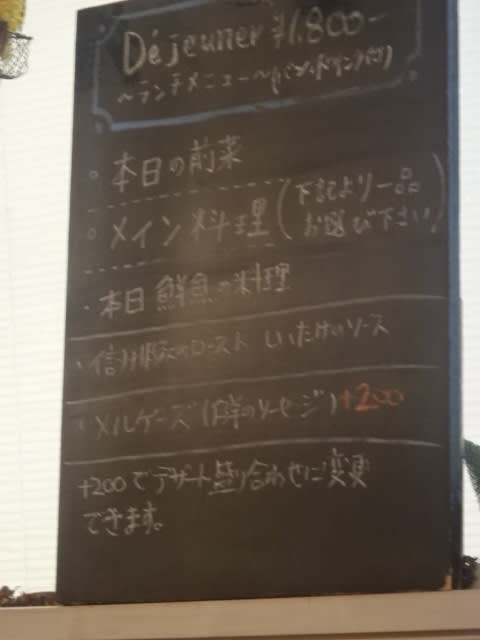 Déjeuner ¥1.800-
〜ランチメニュー〜(パン・ドリンク付)
。本日の前菜
。メイン料理(下記より一品
お選び下さい)
・本日鮮魚の料理
・信州豚のロースト しいたけのソース
・メルゲーズ(羊のソーセージ)+200
+200でデザート盛り合わせに変更
できます。